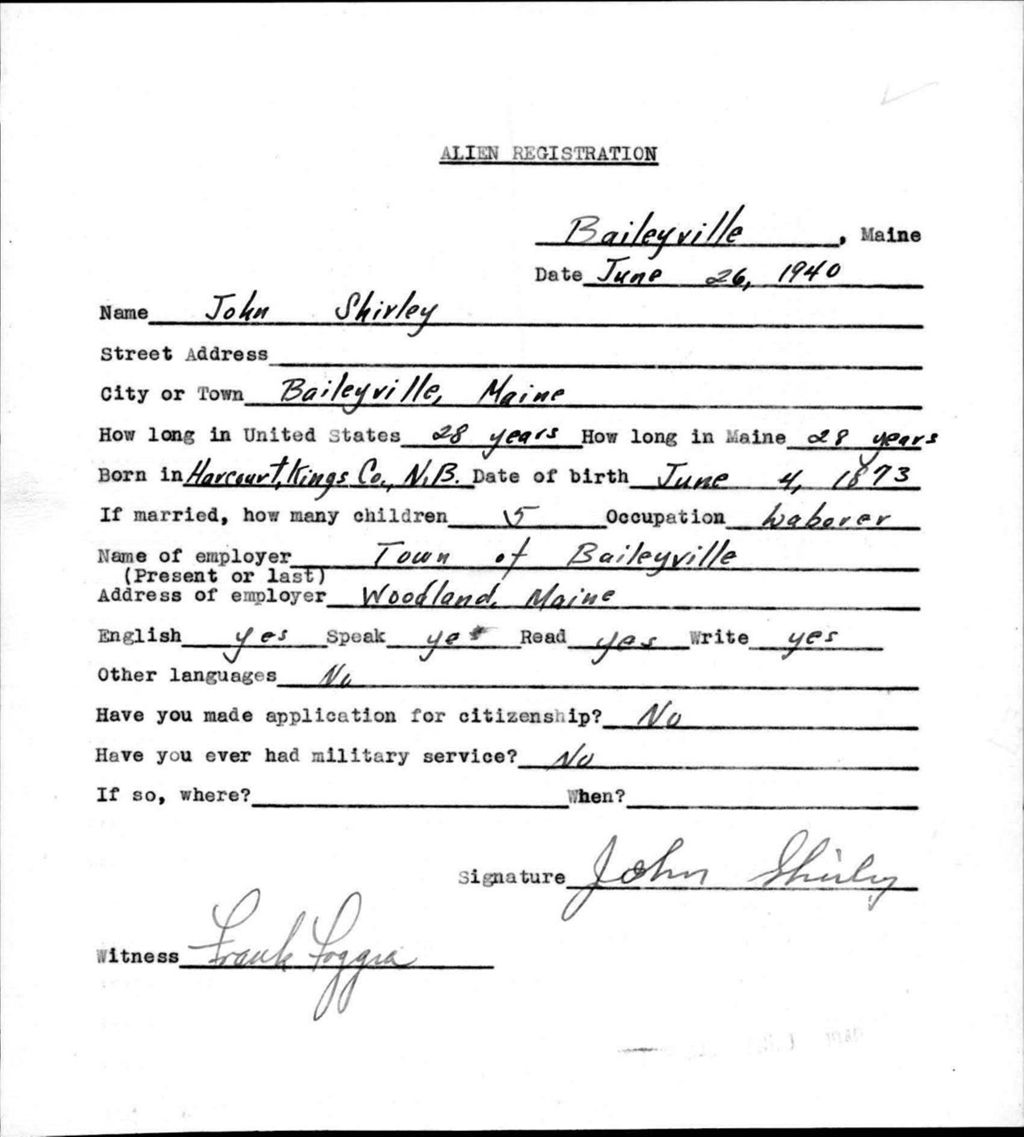 ALIEN REGISTRATION
Baileyville, Maine
Date June 26, 1940
Name John Shirley
Street Address
City or Town Baileyville, Maine
How long in United States 28 years How long in Maine 28 years
Born in Harcourt, Kings Co., N.B. Date of birth June 4, 1873
If married, how many children 5 Occupation Laborer
Name of employer Town of Baileyville
(Present or last)
Address of employer Woodland, Maine
English yes Speak yes Read yes Write yes
Other languages No
Have you made application for citizenship? No
Have you ever had military service? No
If so, where? When?
Signature John Shirley
Witness Frank